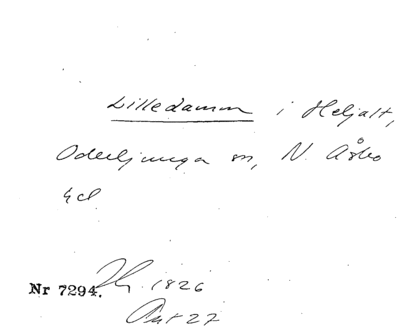 Lilledamm i Heljalt,
Oderljunga sn, N. Åsbo
hd
Nr 7294. 1826
27